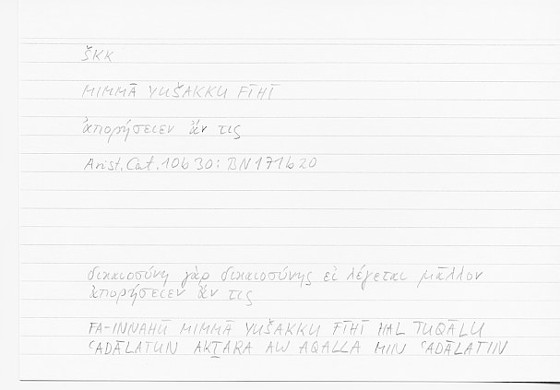 ŠKK
MIMMĀ YUŠAKKU FĪHĪ
ἀπορήσειεν ἄν τις
Arist. Cat. 10b30: BN171b20
δικαιοσύνη γὰρ δικαιοσύνης εἰ λέγεται μᾶλλον
ἀπορήσειεν ἄν τις
FA-INNAHŪ MIMMĀ YUŠAKKU FĪHĪ HAL TUQĀLU
ʿADĀLATUN AKṮARA AW AQALLA MIN ʿADĀLATIN